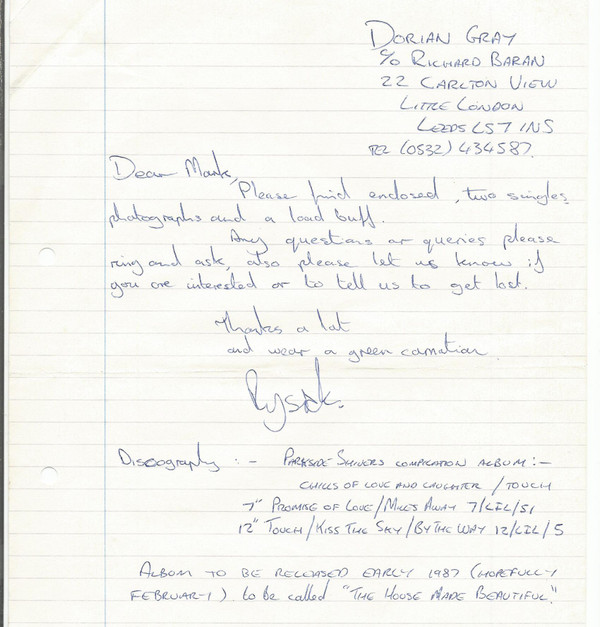 DORIAN GRAY
c/o RICHARD BARAN
22 CARLTON VIEW
LITTLE LONDON
LEEDS LS7 1NS
TEL (0532) 434587.
Dear Mark,
Please find enclosed, two singles,
photographs and a load buff.
Any questions or queries please
ring and ask, also please let us know if
you are interested or to tell us to get lost.
Thanks a lot
and wear a green carnation
Discography :- PARKSIDE SHIVERS COMPILATION ALBUM :-
CHILLS OF LOVE AND LAUGHTER / TOUCH
7" PROMISE OF LOVE / MILES AWAY 7/LIL/51
12" TOUCH / KISS THE SKY / BY THE WAY 12/LIL/5
ALBUM TO BE RELEASED EARLY 1987 (HOPEFULLY
FEBRUARY) to be called "THE HOUSE MADE BEAUTIFUL."